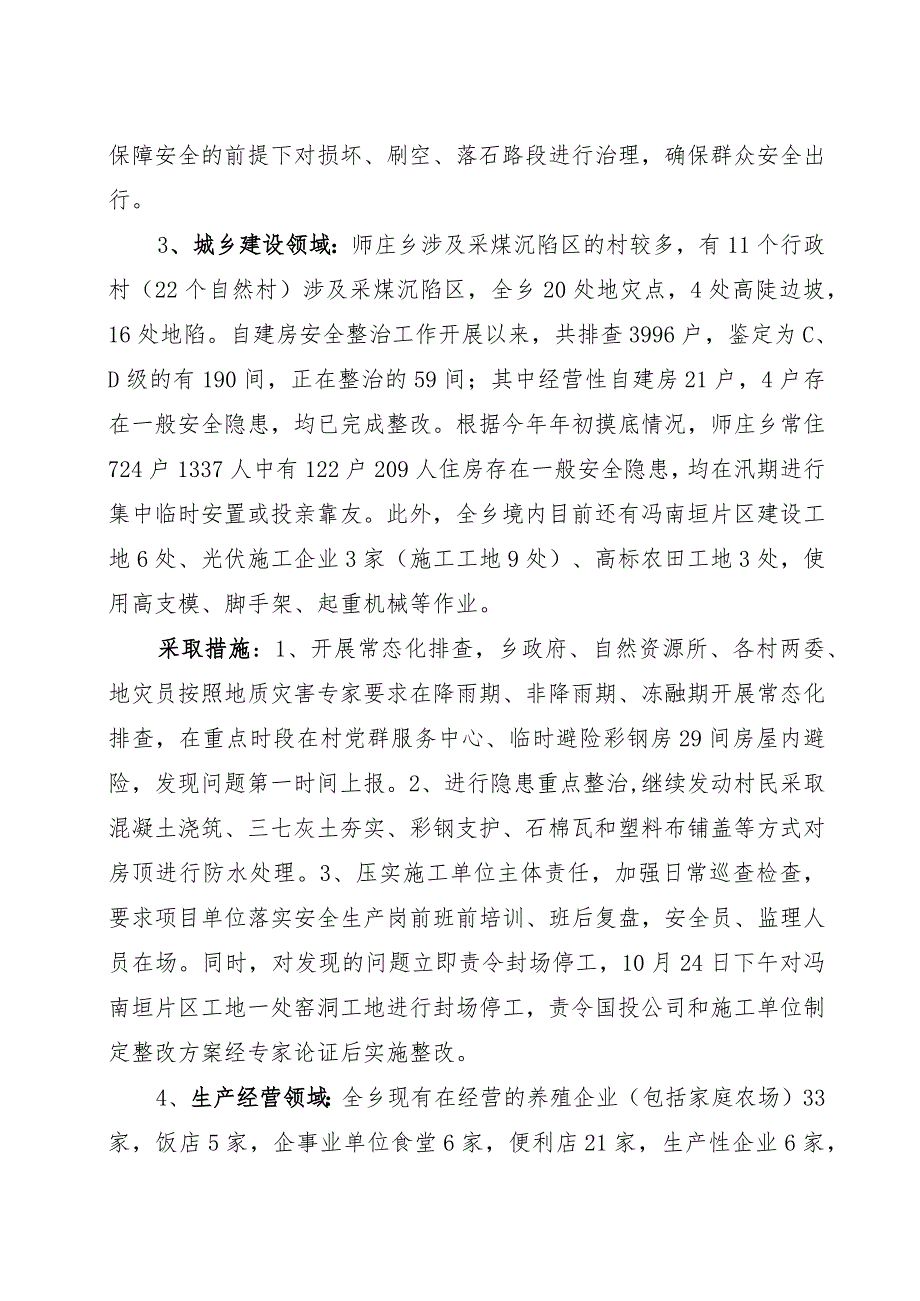 保障安全的前提下对损坏、刷空、落石路段进行治理，确保群众安全出
行。
3、城乡建设领域：师庄乡涉及采煤沉陷区的村较多，有 11 个行政
村（22 个自然村）涉及采煤沉陷区，全乡 20 处地灾点，4 处高陡边坡，
16 处地陷。自建房安全整治工作开展以来，共排查 3996 户，鉴定为 C、
D 级的有 190 间，正在整治的 59 间；其中经营性自建房 21 户，4 户存
在一般安全隐患，均已完成整改。根据今年年初摸底情况，师庄乡常住
724 户 1337 人中有 122 户 209 人住房存在一般安全隐患，均在汛期进行
集中临时安置或投亲靠友。此外，全乡境内目前还有冯南垣片区建设工
地 6 处、光伏施工企业 3 家（施工工地 9 处）、高标农田工地 3 处，使
用高支模、脚手架、起重机械等作业。
采取措施：1、开展常态化排查，乡政府、自然资源所、各村两委、
地灾员按照地质灾害专家要求在降雨期、非降雨期、冻融期开展常态化
排查，在重点时段在村党群服务中心、临时避险彩钢房 29 间房屋内避
险，发现问题第一时间上报。2、进行隐患重点整治,继续发动村民采取
混凝土浇筑、三七灰土夯实、彩钢支护、石棉瓦和塑料布铺盖等方式对
房顶进行防水处理。3、压实施工单位主体责任，加强日常巡查检查，
要求项目单位落实安全生产岗前班前培训、班后复盘，安全员、监理人
员在场。同时，对发现的问题立即责令封场停工，10 月 24 日下午对冯
南垣片区工地一处窑洞工地进行封场停工，责令国投公司和施工单位制
定整改方案经专家论证后实施整改。
4、生产经营领域：全乡现有在经营的养殖企业（包括家庭农场）33
家，饭店 5 家，企事业单位食堂 6 家，便利店 21 家，生产性企业 6 家，